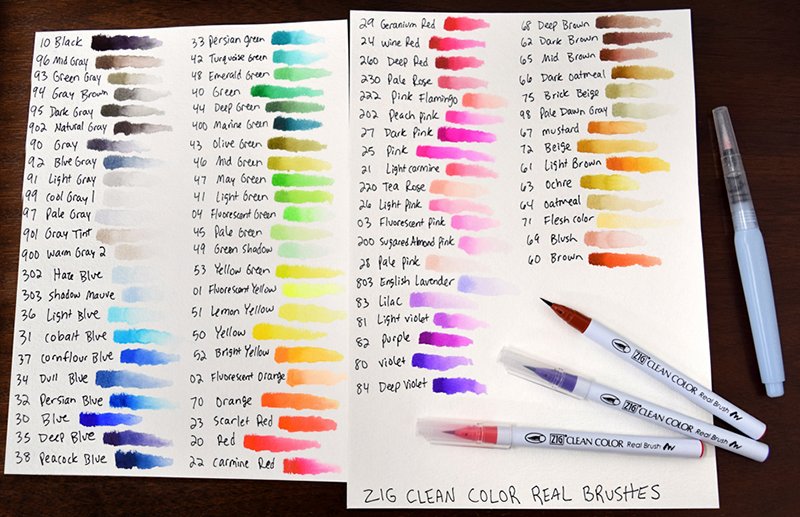 10 Black
96 Mid Gray
93 Green Gray
94 Gray Brown
95 Dark Gray
902 Natural Gray
90 Gray
92 Blue Gray
91 Light Gray
99 Cool Gray 1
97 Pale Gray
901 Gray Tint
900 Warm Gray 2
302 Haze Blue
303 Shadow Mauve
36 Light Blue
31 Cobalt Blue
37 Cornflour Blue
34 Dull Blue
32 Persian Blue
30 Blue
35 Deep Blue
38 Peacock Blue
33 Persian green
42 Turquoise Green
48 Emerald Green
40 Green
44 Deep Green
400 Marine Green
43 Olive Green
46 Mid Green
47 May Green
41 Light Green
04 Fluorescent Green
45 Pale Green
49 Green Shadow
53 Yellow Green
01 Fluorescent Yellow
51 Lemon Yellow
50 Yellow
52 Bright Yellow
02 Fluorescent Orange
70 Orange
23 Scarlet Red
20 Red
22 Carmine Red
29 Geranium Red
24 Wine Red
260 Deep Red
230 Pale Rose
222 Pink Flamingo
202 Peach Pink
27 Dark Pink
25 Pink
21 Light carmine
220 Tea Rose
26 Light Pink
03 Fluorescent Pink
200 Sugared Almond Pink
28 Pale Pink
803 English Lavender
83 Lilac
81 Light violet
82 Purple
80 violet
84 Deep Violet
68 Deep Brown
62 Dark Brown
65 Mid Brown
66 Dark Oatmeal
75 Brick Beige
98 Pale Dawn Gray
67 mustard
72 Beige
61 Light Brown
63 Ochre
64 Oatmeal
71 Flesh color
69 Blush
60 Brown
ZIG CLEAN COLOR Real Brush
ZIG CLEAN COLOR Real Brush
ZIG CLEAN COLOR Real Brush
ZIG CLEAN COLOR REAL BRUSHES